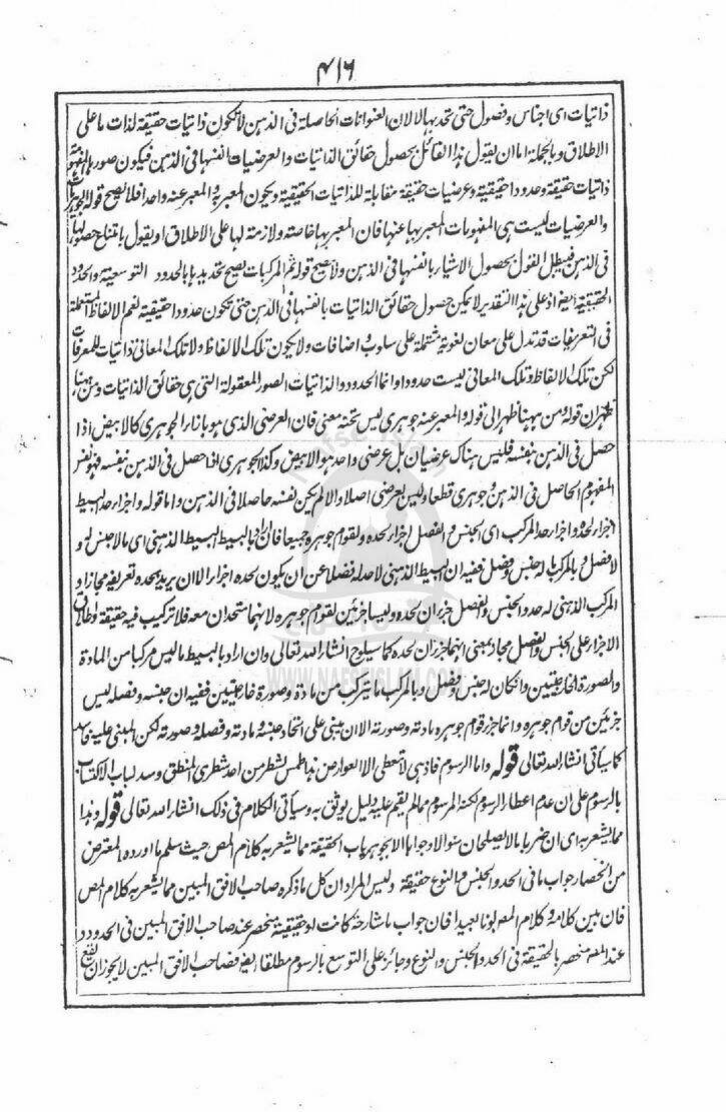 ۴۱۶
ذاتيات اى اجناس وفصول حتى تحد بها الا لان العنوانات الحاصلة فى الذهن لا تكون ذاتيات حقيقة لذات ما على
الاطلاق وبالجملة اما ان يقول هذا القائل بحصول حقائق الذاتيات والعرضيات انفسها فى الذهن فيكون صورها المفهومة
ذاتيات حقيقة وحدودا حقيقية وعرضيات حقيقة مقابلة للذاتيات الحقيقية ويكون المعبر به والمعبر عنه واحدا فلا يصح قوله الجوهريات
والعرضيات ليست هى المفهومات المعبر بها عنها فان المعبر بها خاصة ولازمة لها على الاطلاق او يقول بامتناع حصولها
فى الذهن فيبطل القول بحصول الاشياء بانفسها فى الذهن ولا يصح قوله ثم المركبات يصح تحديدها بالحدود التوسعية والحدود
الحقيقية ايضا اذ على هذا التقدير لا يمكن حصول حقائق الذاتيات بانفسها فى الذهن حتى تكون حدودا حقيقية نعم الالفاظ المستعملة
فى التعريفات قد تدل على معان لغوية مشتملة على سلوب واضافات ولا يكون تلك الالفاظ ولا تلك المعانى ذاتيات للمعرفات
لكن تلك الالفاظ وتلك المعانى ليست حدودا وانما الحدود والذاتيات الصور المعقولة التى هى حقائق الذاتيات ومن ههنا
ظهر ان قوله ومن ههنا ظهر الى قوله والمعبر عنه جوهرى ليس تحته معنى فان العرضى الذى هو بازاء الجوهرى كالابيض اذا
حصل فى الذهن بنفسه فليس هناك عرضيان بل عرضى واحد هو الابيض وكذا الجوهرى اذا حصل فى الذهن بنفسه فهو نفس
المفهوم الحاصل فى الذهن وجوهرى قطعا وليس بعرضى اصلا والا لم يكن نفسه حاصلا فى الذهن واما قوله واجزاء حد البسيط
اجزاء لحده واجزاء حد المركب اى الجنس والفصل اجزاء لحده ولقوام جوهره جميعا فان اراد بالبسيط البسيط الذهنى اى ما لا جنس له و
لا فصل وبالمركب ما له جنس وفصل ففيه ان البسيط الذهنى لا حد له فضلا عن ان يكون لحده اجزاء الا ان يريد بحده تعريفه مجازا و
المركب الذهنى له حد والجنس والفصل جزءان لحده وليسا جزئين لقوام جوهره لانهما متحدان معه فلا تركيب فيه حقيقة واطلاق
الاجزاء على الجنس والفصل مجاز بمعنى انهما جزءان لحده كما سيلوح انشاء الله تعالى وان اراد بالبسيط ما ليس مركبا من المادة
والصورة الخارجيتين وانكان له جنس وفصل وبالمركب ما يتركب من مادة وصورة خارجيتين ففيه ان جنسه وفصله ليس
جزئين من قوام جوهره وانما جزء قوام جوهره مادته وصورته الا ان يبنى على اتحاد جنسه ومادته وفصله وصورته لكن المبنى عليه فاسد
كما سيأتى انشاء الله تعالى قوله واما الرسوم فاذ هى لا تعطى الا العوارض هذا طمس لشطر من احد شطرى المنطق وسد لباب الاكتساب
بالرسوم على ان عدم اعطاء الرسوم لكنه المرسوم مما لم يقم عليه دليل يوثق به وسيأتى الكلام فى ذلك انشاء الله تعالى قوله وهذا
مما يشعر به اى ان ضربا ما لا يصلحان سؤالا وجوابا الا بجوهريات الحقيقة مما يشعر به كلام المص حيث سلم ما اورده المعترض
من انحصار جواب ما فى الحد والجنس والنوع حقيقة وليس المراد ان كل ما ذكره صاحب الافق المبين مما يشعر به كلام المص
فان بين كلامه وكلام المص بونا بعيدا فان جواب ما شارحة كانت او حقيقية منحصر عند صاحب الافق المبين فى الحدود و
عند المص منحصر بالحقيقة فى الحد والجنس والنوع وجائز على التوسع بالرسوم مطلقا ايضا فصاحب الافق المبين لا يجوز ان يقع
WWW.NAFSEISLAM.COM